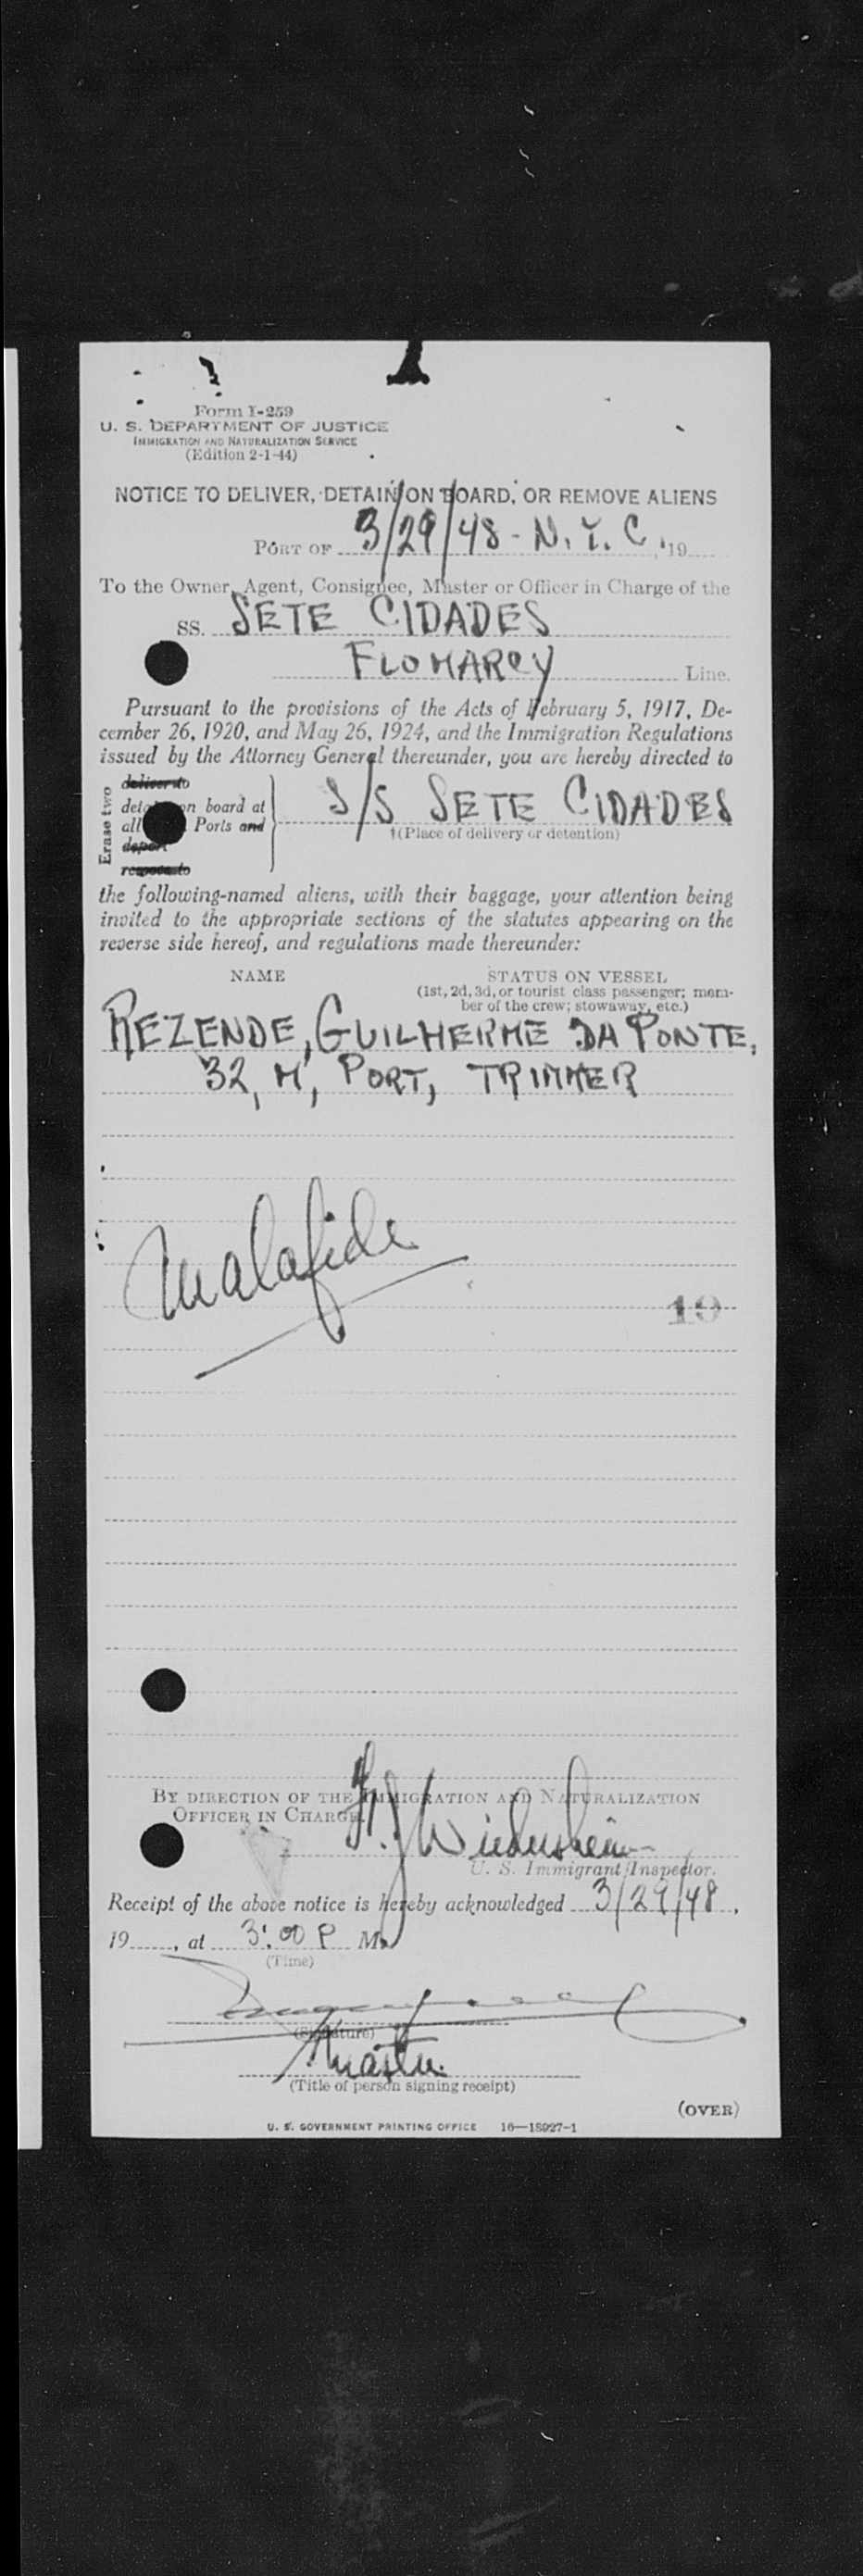 Form I-259
U. S. DEPARTMENT OF JUSTICE
IMMIGRATION AND NATURALIZATION SERVICE
(Edition 2-1-44)
NOTICE TO DELIVER, DETAIN ON BOARD, OR REMOVE ALIENS
PORT OF 3/29/48 - N. Y. C., 19
To the Owner, Agent, Consignee, Master or Officer in Charge of the
SS. SETE CIDADES
FLOMARCY Line.
Pursuant to the provisions of the Acts of February 5, 1917, De-
cember 26, 1920, and May 26, 1924, and the Immigration Regulations
issued by the Attorney General thereunder, you are hereby directed to
Erase two
deliver to
detain on board at
all Ports and
deport
remove to
S/S SETE CIDADES
†(Place of delivery or detention)
the following-named aliens, with their baggage, your attention being
invited to the appropriate sections of the statutes appearing on the
reverse side hereof, and regulations made thereunder:
NAME STATUS ON VESSEL
(1st, 2d, 3d, or tourist class passenger; mem-
ber of the crew; stowaway, etc.)
REZENDE, GUILHERME DA PONTE,
32, M, PORT, TRIMMER
Malafide
19
BY DIRECTION OF THE IMMIGRATION AND NATURALIZATION
OFFICER IN CHARGE.
Wiedersheim
U. S. Immigrant Inspector.
Receipt of the above notice is hereby acknowledged 3/29/48,
19, at 3:00 P M.
(Time)
(Signature)
Master
(Title of person signing receipt)
(OVER)
U. S. GOVERNMENT PRINTING OFFICE 16—18927-1